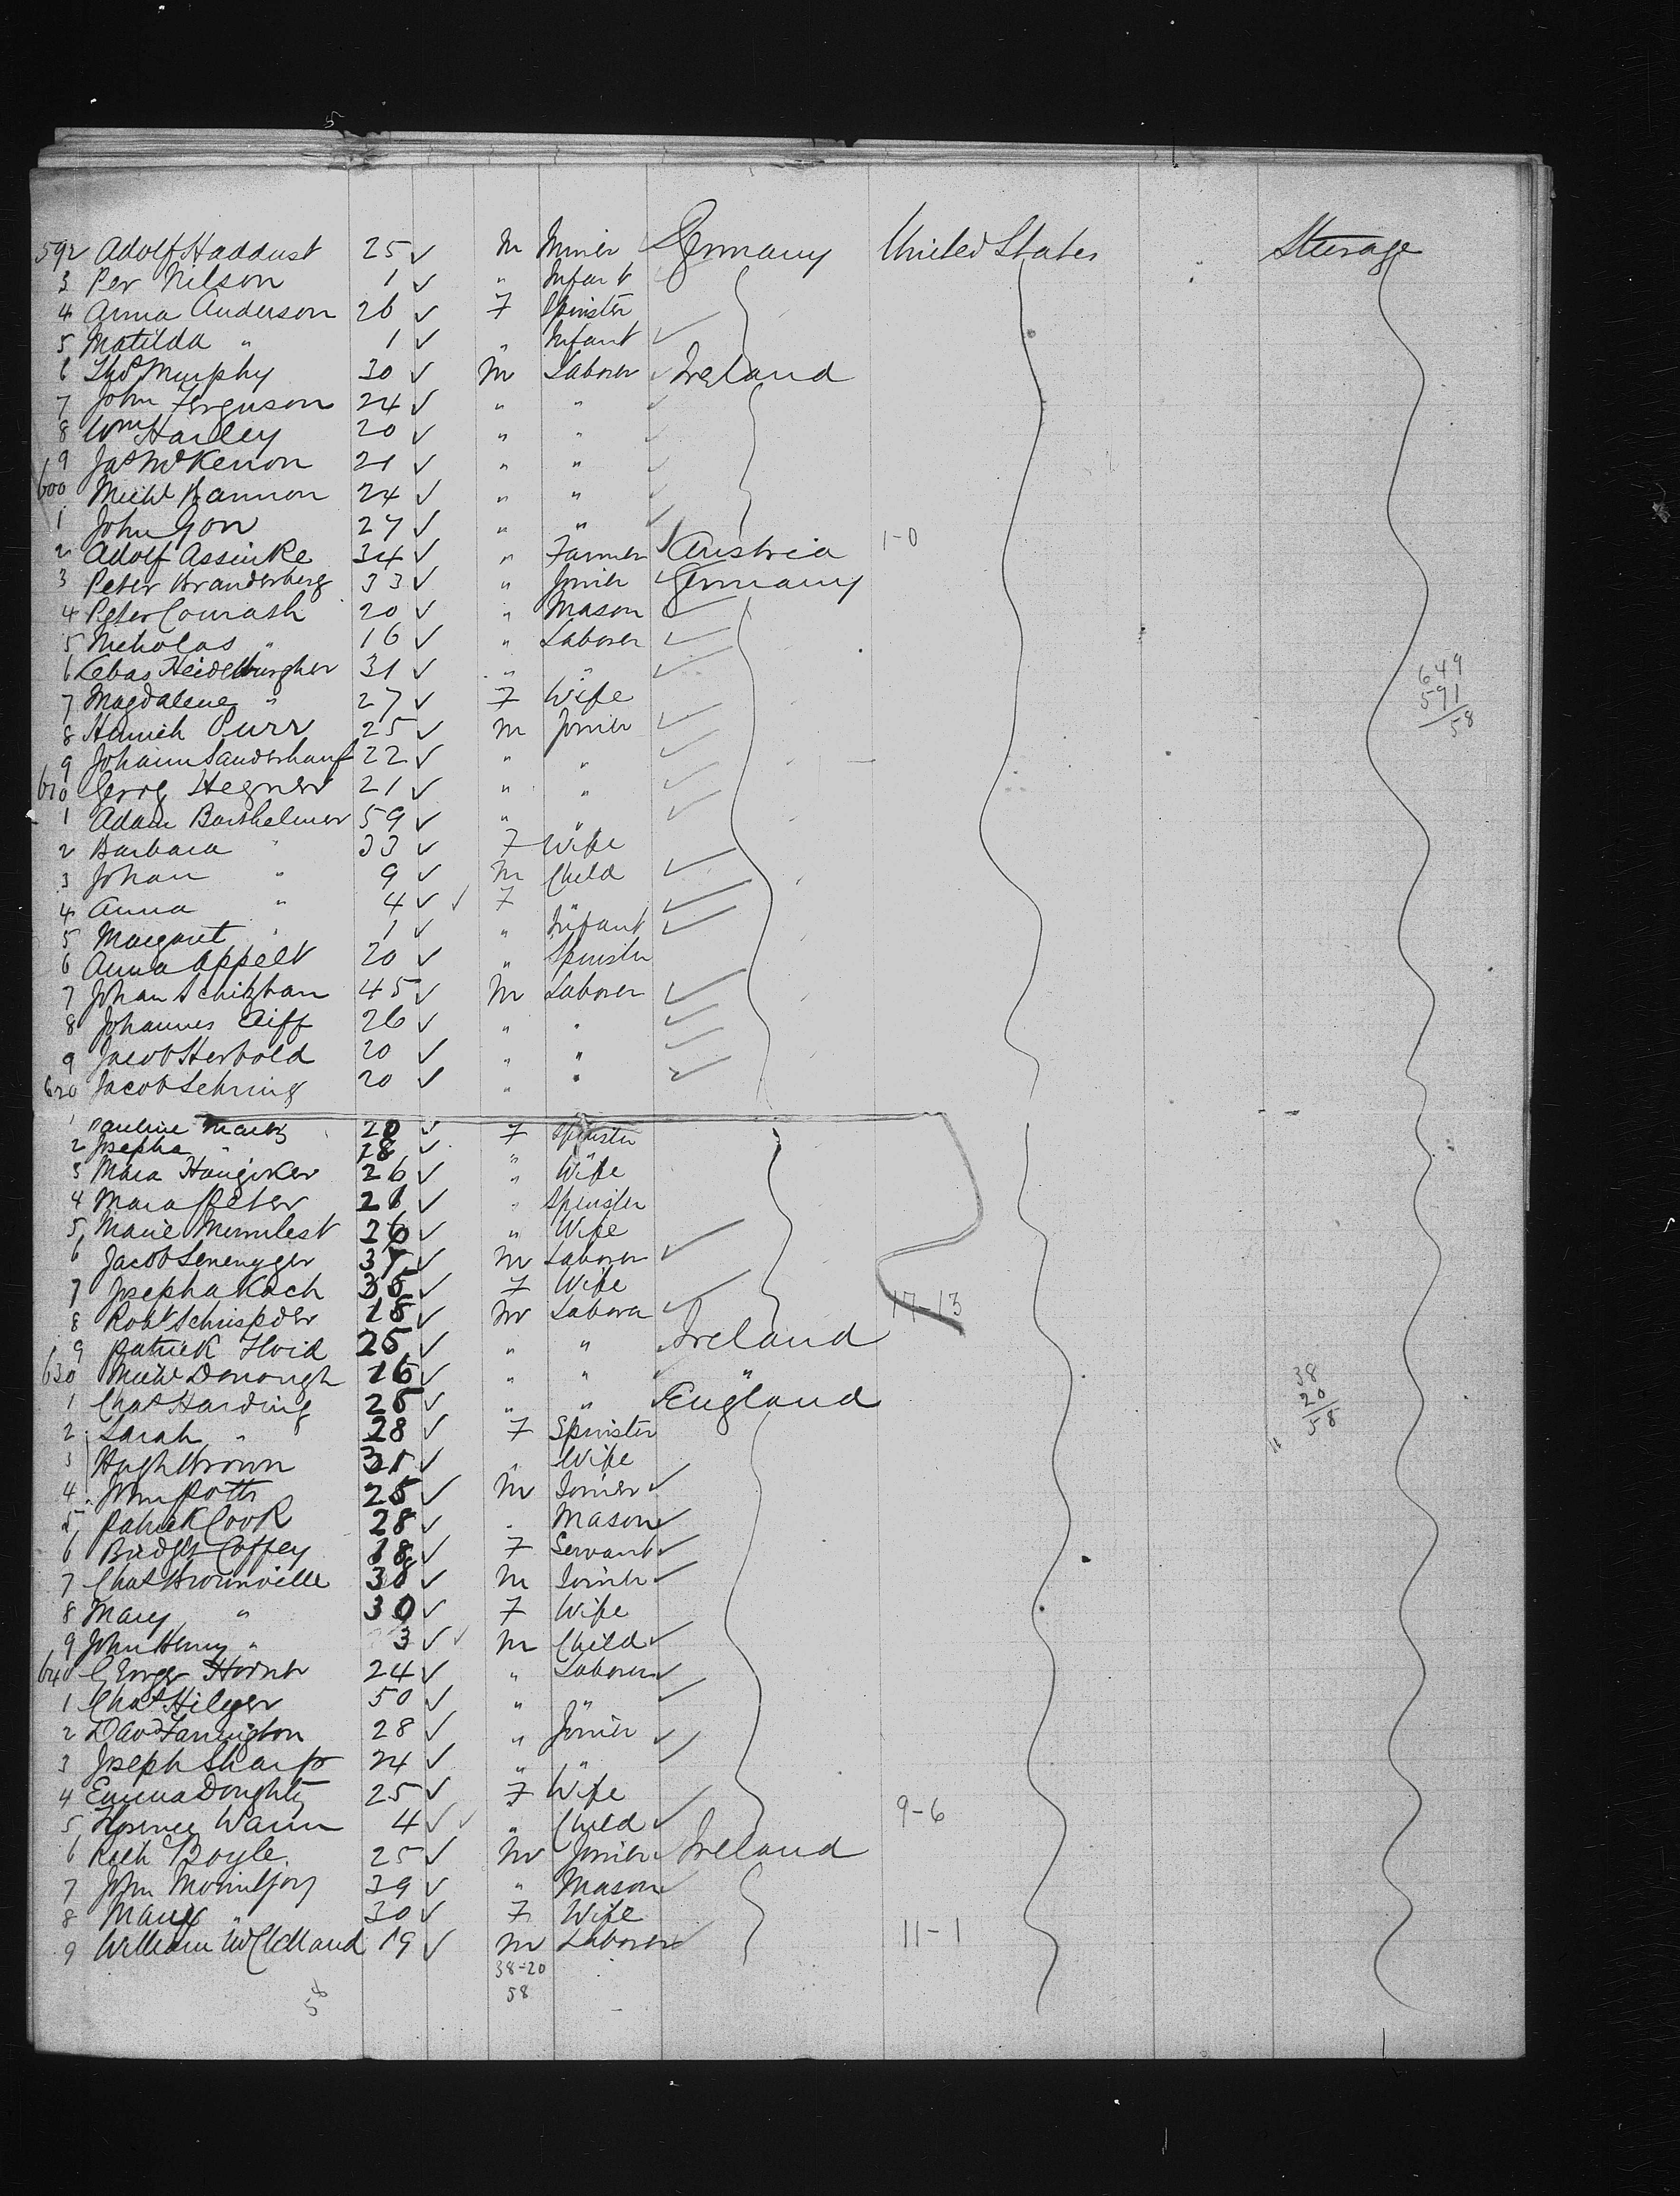 5
592 Adolf Haddust 25 ✓ M Miner Germany United States Steerage
3 Per Nilson 1 ✓ " Infant
4 Anna Anderson 26 ✓ F Spinster
5 Matilda " 1 ✓ " Infant ✓
6 Thos Murphy 30 ✓ M Laborer ✓ Ireland
7 John Ferguson 24 ✓ " " ✓
8 Wm Harley 20 ✓ " " ✓
9 Jas McKenon 21 ✓ " " ✓
600 Michl Bannon 24 ✓ " " ✓
1 John Gon 27 ✓ " " ✓
2 Adolf Assinke 34 ✓ " Farmer ✓ Austria 1-0
3 Peter Branderberg 33 ✓ " Joiner ✓ Germany
4 Peter Courash 20 ✓ " Mason ✓
5 Nicholas " 16 ✓ " Laborer ✓
6 Heidelburgher 31 ✓ " " ✓
7 Magdalene " 27 ✓ F Wife
8 Heinrich Purr 25 ✓ M Joiner ✓
9 Johann Sanderhauf 22 ✓ " " ✓
610 Georg Hegner 21 ✓ " " ✓
1 Adam Barthelmer 59 ✓ " " ✓
2 Barbara " 33 ✓ F Wife
3 Johan " 9 ✓ M Child ✓
4 Anna " 4 ✓ ✓ F " ✓
5 Margaret " 1 ✓ " Infant ✓
6 Anna Appelt 20 ✓ " Spinster
7 Johan Schitzhan 45 ✓ M Laborer ✓
8 Johannes Eiff 26 ✓ " " ✓
9 Jacob Herbold 20 ✓ " " ✓
620 Jacob Sehring 20 ✓ " " ✓
1 Pauline 20 ✓ F Spinster
2 Josepha " 18 ✓ "
3 Mara Haugiker 26 ✓ " Wife
4 Mara Peter 21 ✓ " Spinster
5 Marie 26 ✓ " Wife
6 Jacob 37 ✓ M Laborer ✓
7 Josepha Koch 35 ✓ F Wife
8 Robt 18 ✓ M Labora ✓ 17-13
9 Patrick 25 ✓ " " Ireland
630 Michl Donough 26 ✓ " " "
1 Chas Harding 25 ✓ " " England
2 Sarah " 28 ✓ F Spinster
3 Hugh Brown 31 ✓ " Wife
4 John Potts 25 ✓ M Joiner ✓
5 Patrick Cook 28 ✓ " Mason ✓
6 Bridget Coffey 18 ✓ F Servant ✓
7 Chas Brownville 38 ✓ M Joiner ✓
8 Mary " 30 ✓ F Wife
9 John Henry " 3 ✓ ✓ M Child ✓
640 George 24 ✓ " Laborer ✓
1 Chas Hilyer 50 ✓ " " ✓
2 Davd Farrington 28 ✓ " Joiner ✓
3 Joseph Sharp 24 ✓ " " ✓
4 Emma Doughty 25 ✓ F Wife
5 Florence Wann 4 ✓ ✓ " Child ✓ 9-6
6 Boyle 25 ✓ M Joiner ✓ Ireland
7 John 39 ✓ " Mason ✓
8 Mary " 30 ✓ F Wife
9 William 19 ✓ M Laborer ✓ 11-1
38-20
58
649
591
58
38
20
58